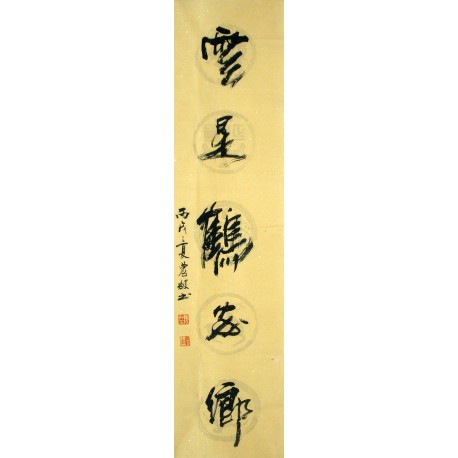 雲是鶴家鄉
丙戌夏